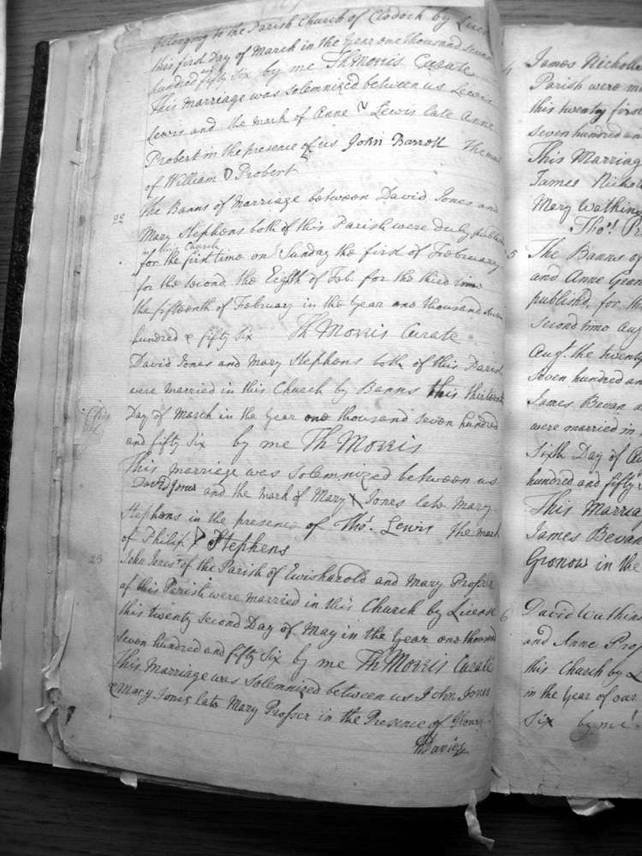 belonging to the Parish Church of Clodock by Licen
this first Day of March in the Year one thousand seven
hundred & fifty Six by me Th Morris Curate
This marriage was solemnized between us Lewis
Lewis and the mark of Anne Lewis late Anne
Probert in the presence of us John Barrott The mark
of William D Probert
22
The Banns of Marriage between David Jones and
Mary Stephens both of this Parish were duly publish
in this Church
for the first time on Sunday the first of February
for the second the Eighth of Feb. for the third time
the fifteenth of February in the Year one thousand seven
hundred & fifty Six Th Morris Curate
David Jones and Mary Stephens both of this Parish
were married in this Church by Banns this thirteen
Day of March in the Year one thousand seven hundred
and fifty Six by me Th Morris
This marriage was solemnized between us
David Jones and the mark of Mary X Jones late Mary
Stephens in the presence of Thos. Lewis The mark
of Philip P Stephens
23
John Jones of the Parish of Ewisharold and Mary Prosser
of this Parish were married in this Church by Licence
this twenty second Day of May in the Year one thousand
seven hundred and fifty Six by me Th Morris Curate
This Marriage was Solemnized between us John Jones
Mary Jones late Mary Prosser in the Presence of Henry
Davies
4
James Nicholl
Parish were m
this twenty first
seven hundred an
This Marriag
James Nicho
Mary Watkin
Thos. P
5
The Banns of
and Anne Gron
published for th
Second time Aug
Aug. the twenty
Seven hundred a
James Bevan
were married in
Sixth Day of A
hundred and fifty
This Marria
James Bevan
Gronow in the
6
David Watkin
and Anne Pro
this Church by L
in the Year of our
Six by me